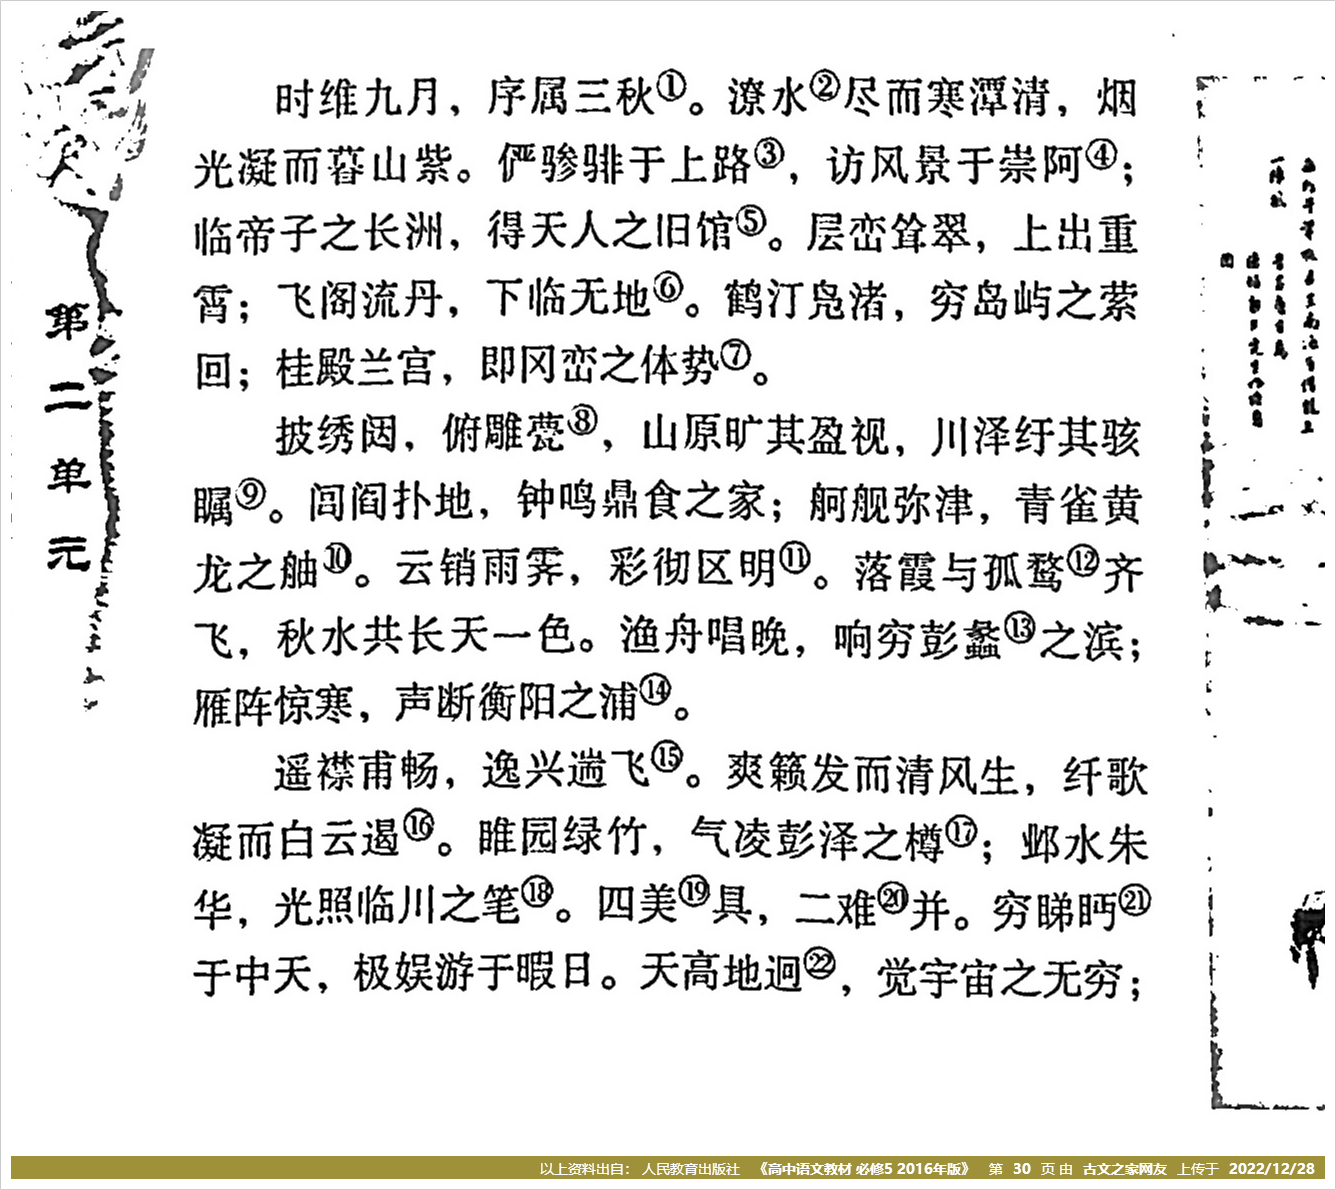 第二单元
时维九月，序属三秋①。潦水②尽而寒潭清，烟
光凝而暮山紫。俨骖騑于上路③，访风景于崇阿④；
临帝子之长洲，得天人之旧馆⑤。层峦耸翠，上出重
霄；飞阁流丹，下临无地⑥。鹤汀凫渚，穷岛屿之萦
回；桂殿兰宫，即冈峦之体势⑦。
披绣闼，俯雕甍⑧，山原旷其盈视，川泽纡其骇
瞩⑨。闾阎扑地，钟鸣鼎食之家；舸舰弥津，青雀黄
龙之舳⑩。云销雨霁，彩彻区明⑪。落霞与孤鹜⑫齐
飞，秋水共长天一色。渔舟唱晚，响穷彭蠡⑬之滨；
雁阵惊寒，声断衡阳之浦⑭。
遥襟甫畅，逸兴遄飞⑮。爽籁发而清风生，纤歌
凝而白云遏⑯。睢园绿竹，气凌彭泽之樽⑰；邺水朱
华，光照临川之笔⑱。四美⑲具，二难⑳并。穷睇眄㉑
于中天，极娱游于暇日。天高地迥㉒，觉宇宙之无穷；
以上资料出自： 人民教育出版社 《高中语文教材 必修5 2016年版》 第 30 页 由 古文之家网友 上传于 2022/12/28